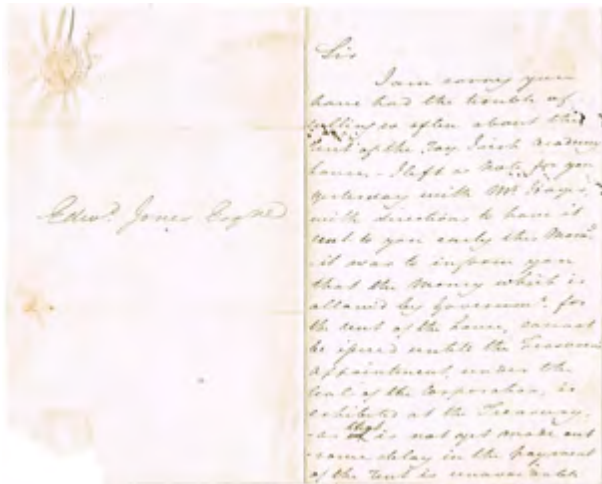 Edwd. Jones Esqre
Sir
I am sorry you
have had the trouble of
calling so often about the
rent of the Roy. Irish Academy
house. I left a Note for you
yesterday with Mr. Hays,
with directions to have it
sent to you early this Morng.
it was to inform you
that the Money which is
allowed by Governmt. for
the rent of the house, cannot
be issued untill the Treasurer
appointment, under the
Seal of the Corporation, is
exhibited at the Treasury.
as that is not yet made out
some delay in the payment
of the rent is unavoidable